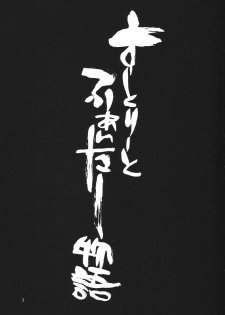 すーとりーと
ふぁいたー
物語
3